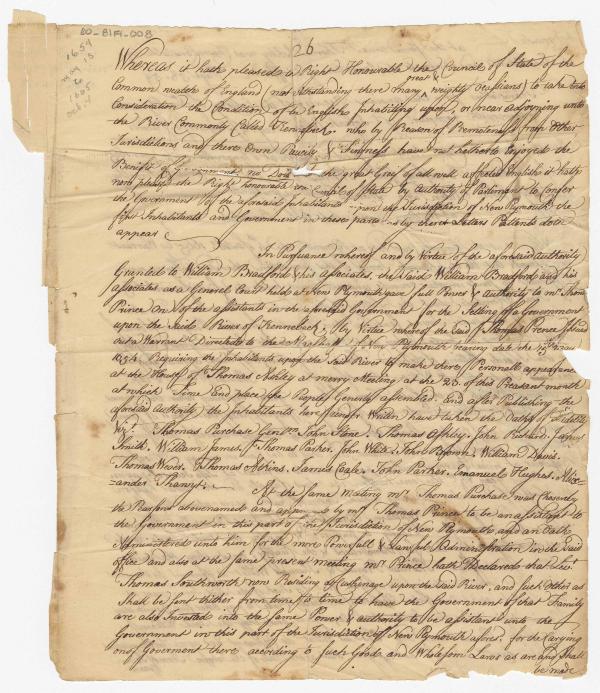 00-8191-008
26
1654
May
13
to
1665
Oct. 4
Whereas it hath pleased a Right Honourable the Council of State of the
Common wealth of England (not withstanding there many great weighty occasions) to take into
Consideration the Condition of the English Inhabiting upon, or near adjoyning unto
the River Commonly Called Kennebeck, who by Reason of Remoteness from Other
Jurisdictions and there Own Paucity & fewness have not hetherto enjoyed the
Benefit of Government, no the great Greif of all well affected English it hath
now pleased the Right honourable Council of State by Authority of Parlement to Confer
the Government of the aforesaid Inhabitants upon the Jurisdiction of New Plymouth the
first Inhabitants and Government in these parts as by there Letters Pattents doth
appear
In Pursuance whereof and by Virtue of the aforesaid Authority
Granted to William Bradford & his associates, the Said William Bradford and his
associates as a General Court held at New Plymouth gave full Power & Authority to Mr. Thomas
Prince One of the assistants in the aforesaid Government for the Setling of a Government
upon the Said River of Kennebeck, By Virtue whereof the Said Thomas Prence Issued
out a Warrant Directed to the Marshall of New Plymouth bearing date the
1654 Requiring the Inhabitants upon the Said River to make there Personall appearance
at the House of Thomas Ashley at merry Meeting at the 23. of this Present month
at which time and place the People Generaly assembled. And after Publishing the
aforesaid Authority the Inhabitants here under Written have taken the Oath of Fidelity
Viz. Thomas Purchase Gentn. John Stone. Thomas Ashley. John Richards. James
Smith. William James. Thomas Parker. John White. John Brown. William Davis.
Thomas Weber. Thomas Atkins. James Coale. John Parker. Emanuel Hughes. Alex-
ander Thawyt.
At the Same meeting Mr. Thomas Purchase was Chosen by
the Persons abovenamed and by Mr. Thomas Prince to be an assistant to
the Government in this part of the Jurisdiction of New Plymouth and an Oath
Administered unto him for the more Powerfull & Lawful Administration in the Said
office and also at the Same present meeting Mr. Prince hath Declared that Leiut.
Thomas Southworth now Residing at Cushenage upon the said River, and such other as
Shall be sent thither from time to time to have the Government of that Family
are also Invested into the Same Power & authority to be assistants unto the
Government in this part of the Jurisdiction of New Plymouth afores. for the Carrying
on of Goverment there according to Such Good and Wholesom Laws as are and Shall
be made